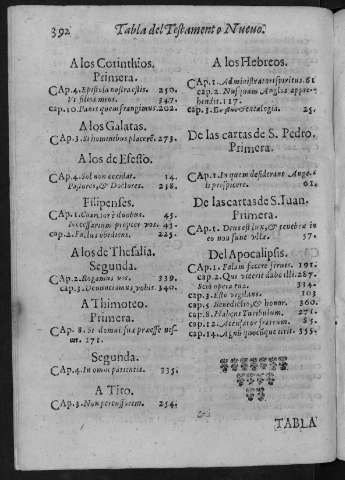 392 Tabla del Testamento Nuevo.
A los Corinthios.
Primera.
CAp. 4. Epistola nostra estis. 250.
Vt filios meos. 347.
cap. 10. Panis quem frangimus. 202.
A los Galatas.
CAp. 3. Si hominibus placerē. 273.
A los de Efeso.
CAp. 4. Sol non occidat. 14.
Pastores, & Doctores. 238.
Filipenses.
CAp. 1. Coarctor è duobus. 45.
Necessarium propter vos. 43.
cap. 2. Factus obediens. 225.
A los de Thesalia.
Segunda.
CAp. 2. Rogamus vos. 339.
cap. 3. Denuntiamus vobis. 340.
A Thimoteo.
Primera.
CAp. 8. Si domui suæ præesse nes-
cun. 171.
Segunda.
CAp. 4. In omni patientia. 335.
A Tito.
CAp. 3. Non percussorem. 254.
A los Hebreos.
CAp. 1. Administratorij spiritus. 61
cap. 2. Nusquam Angelos appre-
hendit. 117.
cap. 3. genealogia. 25.
De las cartas de S. Pedro.
Primera.
CAp. 1. In quem desiderant Ange-
li prospicere. 61.
De las cartas de S. Iuan.
Primera.
CAp. 1. Deus est lux, & tenebræ in
eo non sunt vllæ. 57.
Del Apocalipsis.
CAp. 1. Palam facere servis. 191.
cap. 2. Qui vicerit dabo illi. 287.
Scio opera tua. 334.
cap. 3. Esto vigilans. 103
cap. 5. Benedictio, & honor. 360.
cap. 8. Habens Turibulum. 271.
cap. 12. Accusator fratrum. 85.
cap. 14. Agnū quocūque ierit. 355.
TABLA